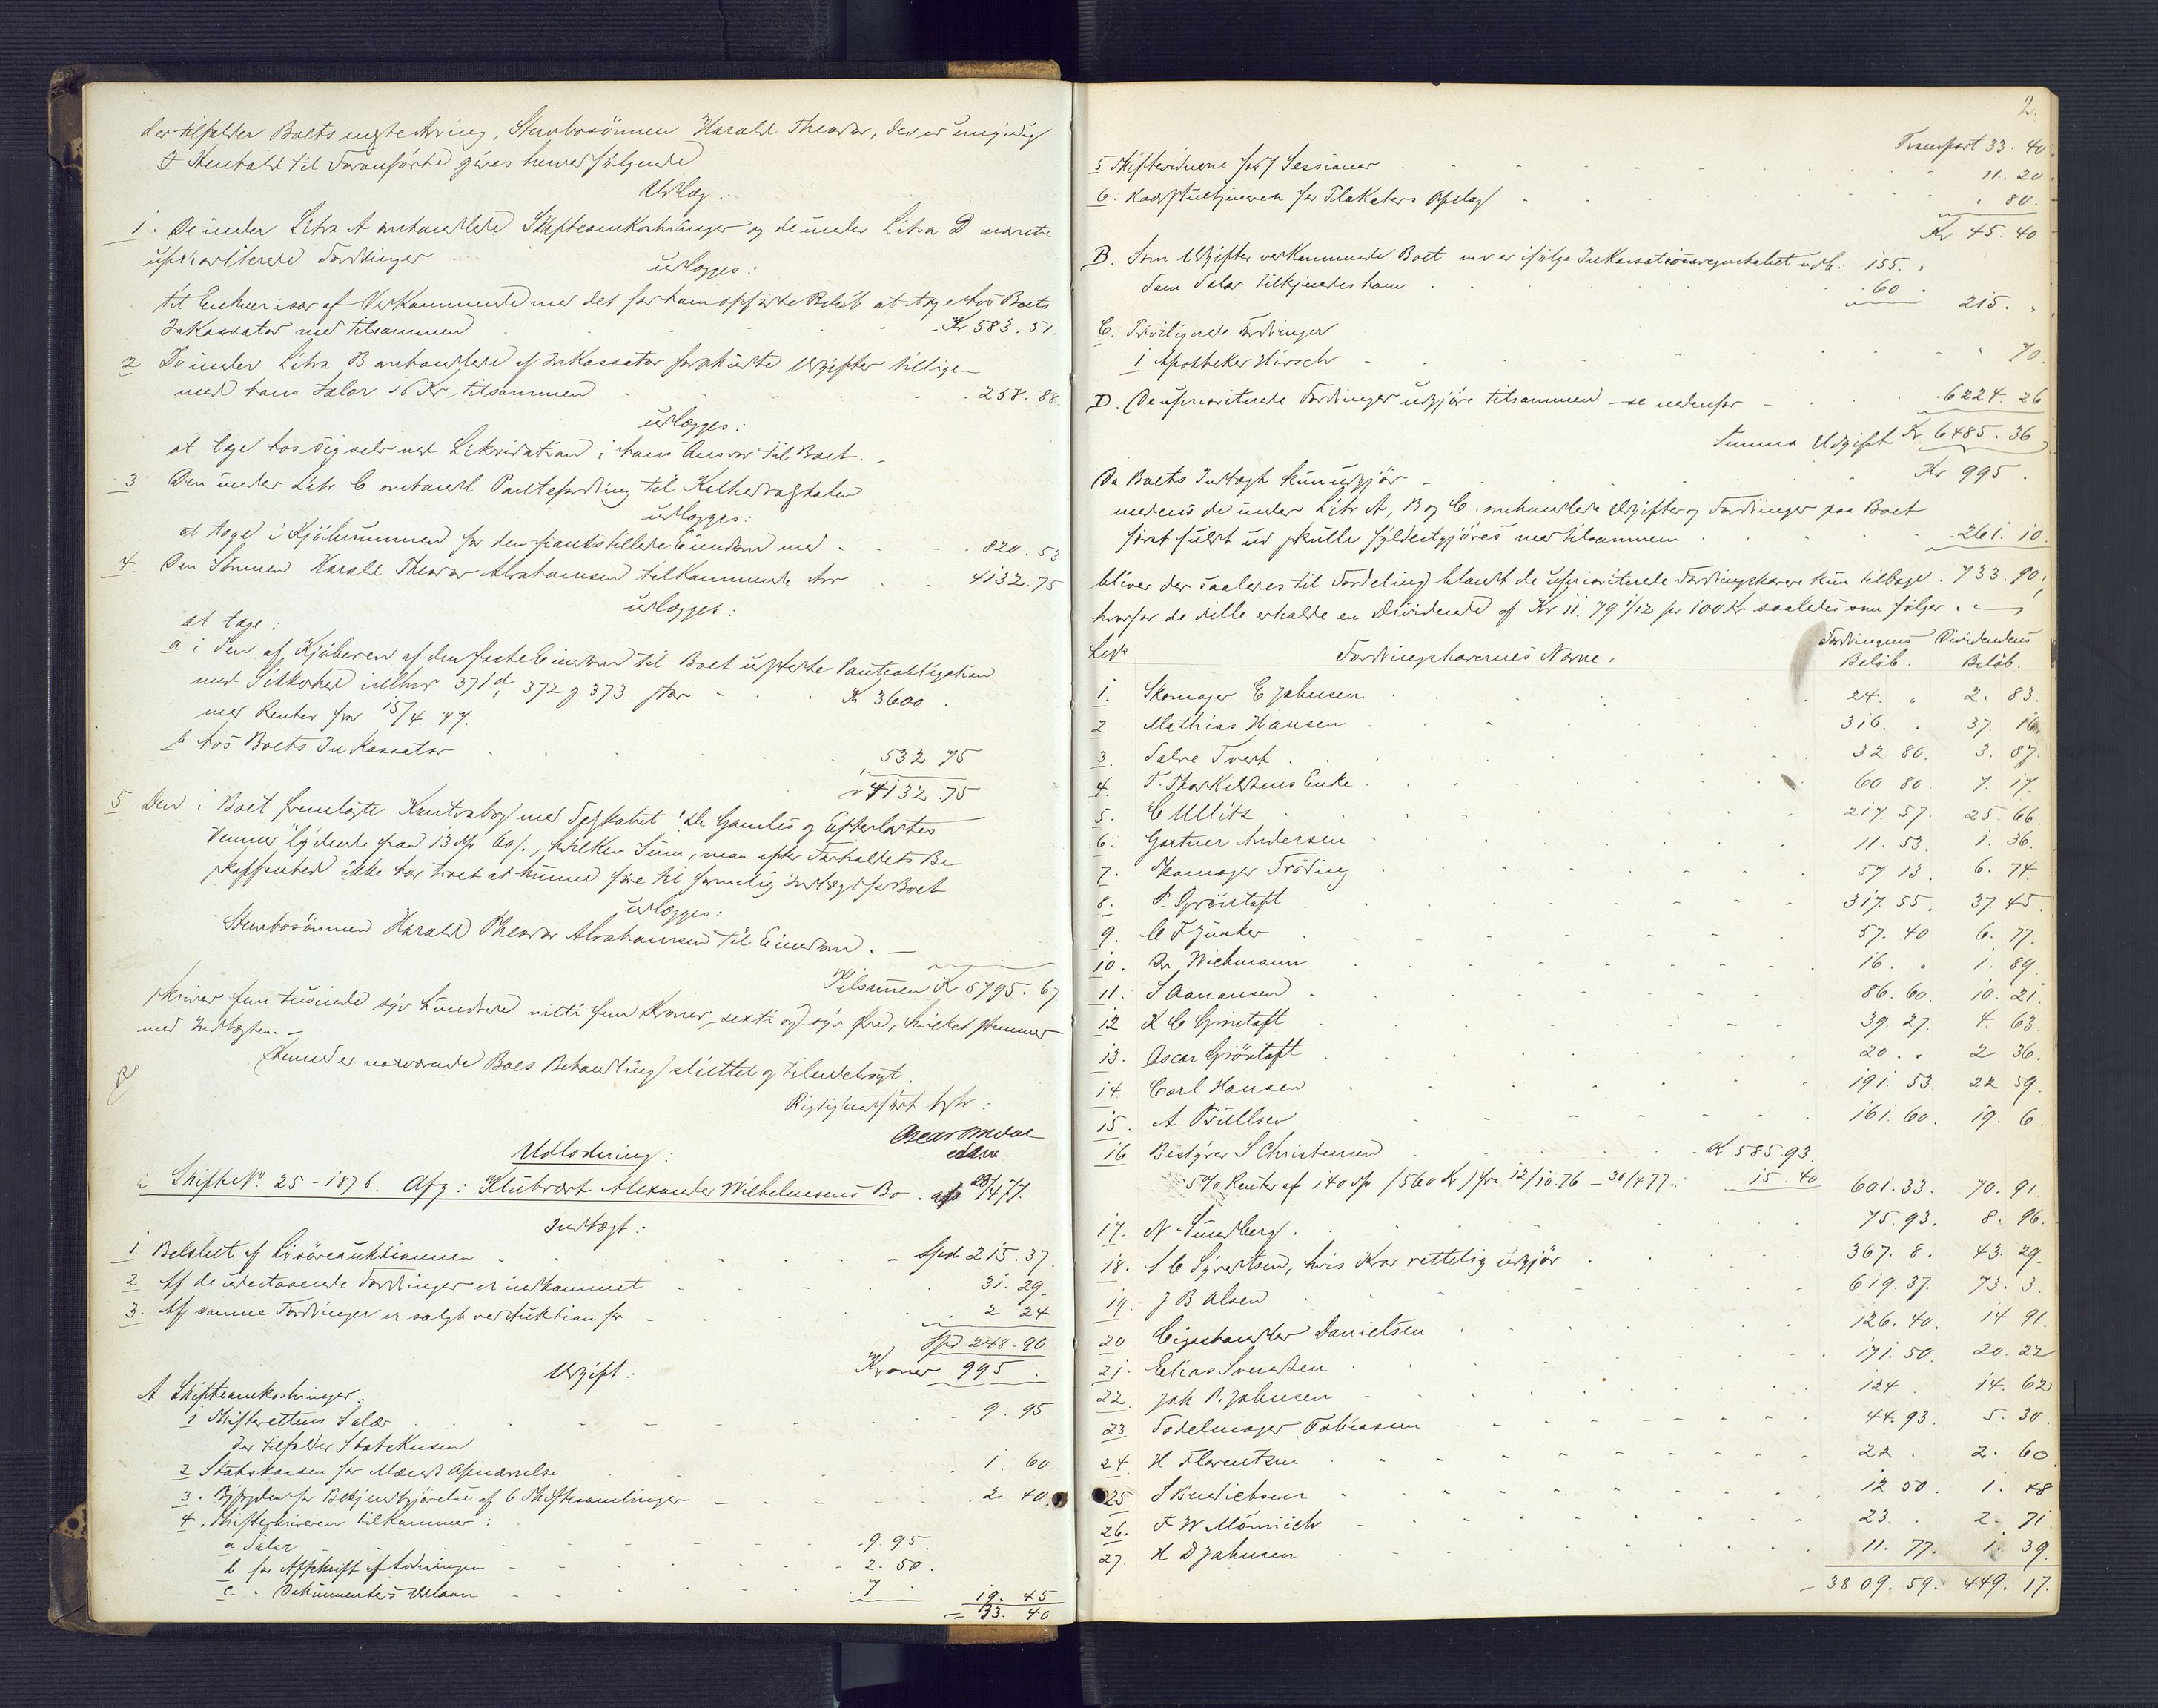 der tilfalder Boets eneste Arving, Stervbosönnen Harald Theodor, der er umyndig
I Henhold til Foranförte gjöres herved fölgende
Udlæg:
1. De under Litra A omhandlede Skifteomkostninger og de under Litra D nævnte
uprioriterede Fordringer
udlægges:
til Enhver især af Vedkommende med det for ham opförte Belöb at tage hos Boets
Inkassator med tilsammen Kr 583. 51.
2 De under Litra B omhandlede af Inkassator forskudte Udgifter tillige-
med hans Salær 16 Kr, tilsammen 258. 88.
udlægges:
at tage hos sig selv ved Likvidation i hans Ansvar til Boet.
3 Den under Litr C omhandl Pantefordring til Kathedralskolen
udlægges:
at tage i Kjöbesummen for den pantstillede Eiendom med 820. 53
4. Den Sönnen Harald Theodor Abrahamsen tilkommende Arv 4132. 75
udlægges:
at tage:
a i den af Kjöberen af den faste Eiendom til Boet udstedte Panteobligation
med Sikkerhed i 371d, 372 g 373 stor Kr 3600.
med Renter fra 15/4. 77.
b hos Boets Inkassator 532 75
4132. 75
5 Den i Boet fremlagte Kontrabog med Selskabet "de Gamles og Efterladtes
Venner" lydende paa 13 Sp 60 s., hvilken Sum, man efter Forholdets Be-
skaffenhed ikke har troet at kunne före til formelig Indtægt for Boet
udlægges:
Stervbosönnen Harald Theodor Abrahamsen til Eiendom.
Tilsammen Kr 5795. 67
skriver fem tusinde syv hundrede nitti fem Kroner, sexti og syv Øre, hvilket stemmer
med Indtægten.
Hermed er nærværende Boes Behandling sluttet og tilendebragt.
Rigtig
Udlodning:
2 Skifte No. 25 - 1876. Afg: Klubvært Alexander Wilhelmsens Bo. 28/4 77.
Indtægt:
1. Belöbet af Lösöreauktionen Spd 215. 37.
2 Af de udestaaende Fordringer er indkommet 31. 29.
3. Af samme Fordringer er solgt ved Auktion for 2 24
Spd 248. 90
Kroner 995.
Udgift:
A Skifteomkostninger.
1 Skifterettens Salær 9. 95.
der tilfalder Statskassen
2 Statskassen for Mærets Afbenævnelse 1. 60
3. Byfogden for Bekjendtgjörelse af 6 Skiftesamlinger 2. 40.
4. Skifteskriveren tilkommer:
a Salær 9. 95.
b for Afskrift af Lodningen 2. 50.
c. " Dokumenters Udlaan 7.
19. 45
33. 40
2.
Transport 33. 40.
5 Skiftevidnerne for 7 Sessioner 11. 20.
6. Raadstuetjeneren for Plakaters Opslag 80.
Kr 45. 40
B. Som Udgifter vedkommende Boet m.v er ifölge Inkassationsregnskabet udb: 155.
Som Salær tilkjendes ham 60.
215.
C. Privilegerede Fordringer
1 Apotheker Hirsch 70
D. De uprioriterede Fordringer udgjöre tilsammen - se nedenfor 6224. 26
Summa Udgift Kr 6485. 36
Da Boets Indtægt kun udgjör Kr 995.
medens de under Litr A, B og C. omhandlede Udgifter og Fordringer paa Boet
först fuldt ud skulle fyldestgjöres med tilsammen 261. 10.
bliver der saaledes til Fordeling blandt de uprioriterede Fordringshavere kun tilbage 733. 90,
hvorfor de ville erholde en Dividende af Kr 11. 79 1/12 pr 100 Kr saaledes som fölger
Löbe Fordringshavernes Navne. Fordringens Belöb. Dividendens Belöb.
1. Skomager C Johnsen 24. " 2. 83.
2 Mathias Hansen 316. " 37. 16
3. Salve Tvert 32 80. 3. 87.
4. T. Thorkildsens Enke 60 80 7. 17.
5. C Ullitz 217. 57. 25. 66.
6. Gartner Andersen 11. 53. 1. 36.
7. Skomager Fröding 57 13. 6. 74.
8. P. Gröntoft 317. 55. 37. 45.
9. C F Junker 57. 40 6. 77.
10. Dr Wichmann 16. " 1. 89.
11. S Aanonsen 86. 60. 10. 21.
12 K C Gröntoft 39. 27. 4. 63.
13. Oscar Gröntoft 20. " 2 36.
14. Carl Hansen 191. 53. 22 59.
15. A Büllsen 161. 60. 19. 6.
16 Bestyrer S Christensen Kr 585 93.
5% Renter af 140 Sp (560 Kr) fra 12/10. 76 - 30/4 77. 15. 40 601. 33. 70. 91.
17. N. Sundberg 75. 93. 8. 96.
18. A C Syvertsen, hvis Krav rettelig udgjör 367. 8. 43. 29.
19. J B Olsen 619. 37. 73. 3.
20 Cigarhandler Danielsen 126. 40. 14 91.
21. Elias Svendsen 171. 50. 20. 22
22. Joh P. Johnsen 124. 14. 62
23 Sadelmager Tobiassen 44. 93. 5. 30.
24. H Florentsen 22. 2. 60
25 S Benedictsen 12 50. 1. 48
26. F W Mönnich 23. 2. 71
27. H D Johnsen 11. 77. 1. 39.
3809. 59. 449. 17.